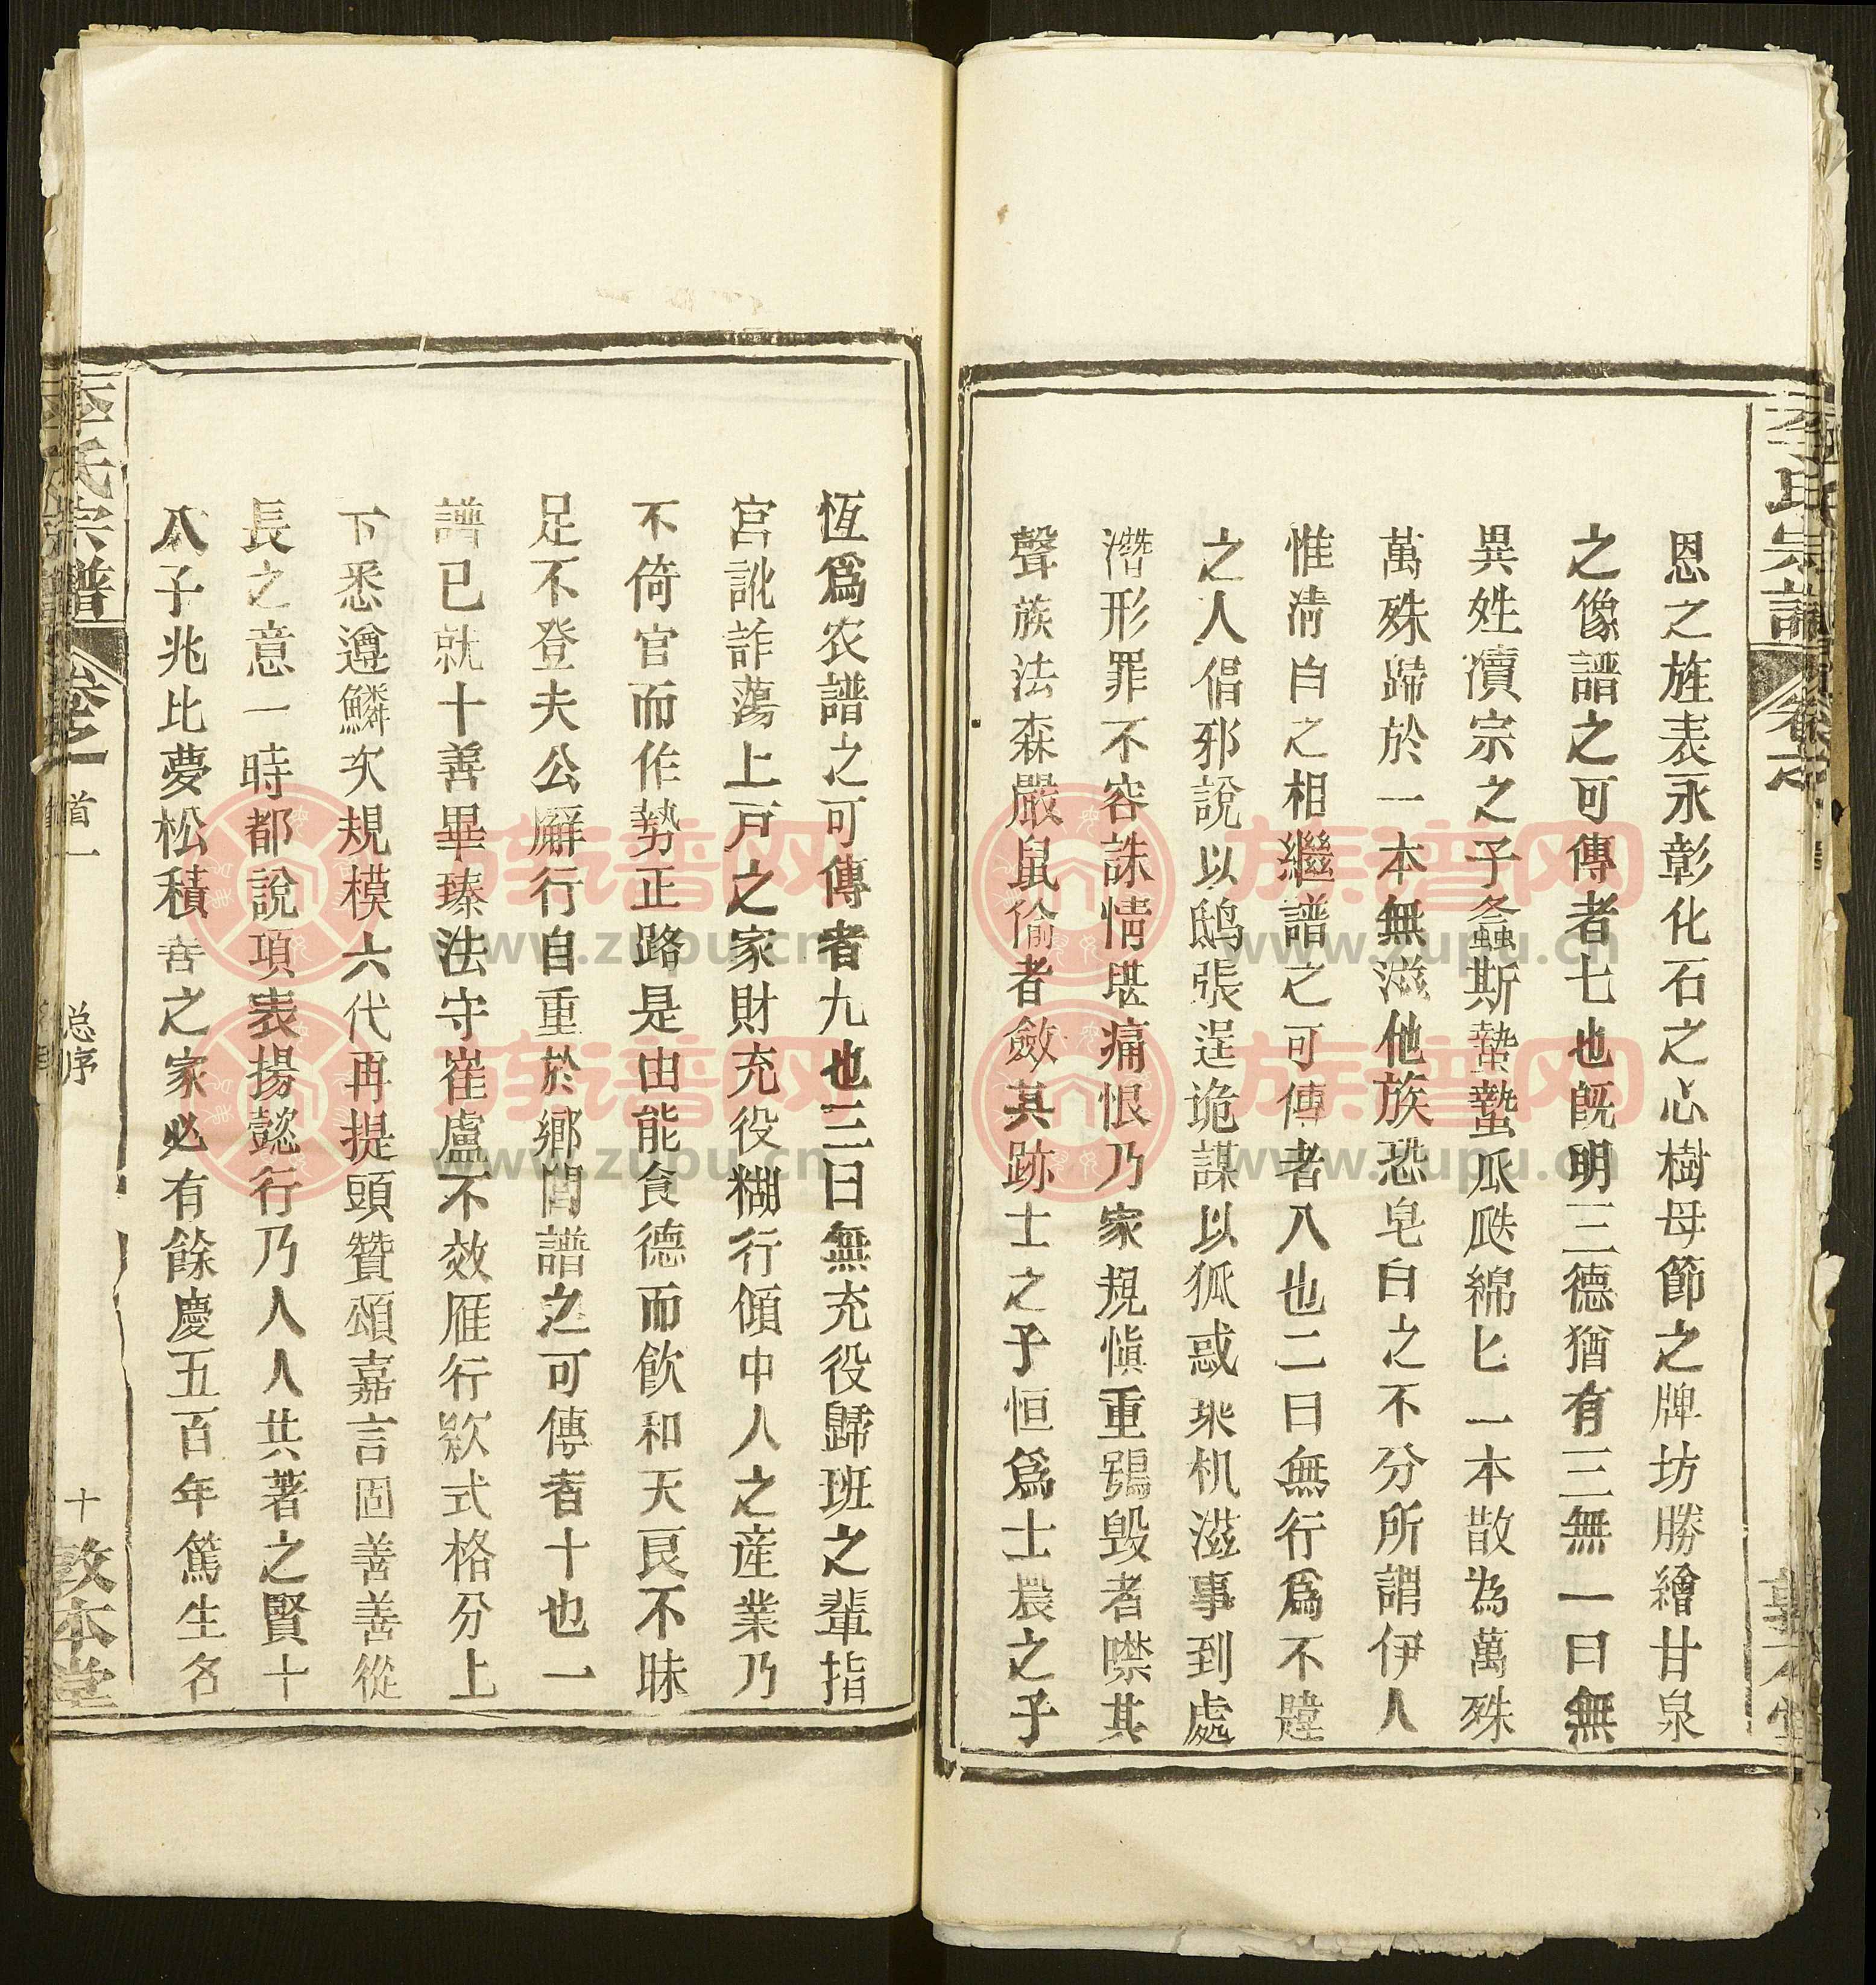 李氏宗譜
卷之一
恩之旌表永彰化石之心樹母節之牌坊勝繪甘泉
之像譜之可傳者七也既明三德猶有三無一曰無
異姓瀆宗之子螽斯蟄蟄瓜瓞綿匕一本散為萬殊
萬殊歸於一本無滋他族恐皂白之不分所謂伊人
惟清白之相繼譜之可傳者八也二曰無行爲不韙
之人倡邪說以鴟張逞詭謀以狐惑釆机滋事到處
潛形罪不容誅情堪痛恨乃家規愼重鴞毀者噤其
聲族法森嚴鼠偷者斂其跡士之子恒爲士農之子
恆爲农譜之可傳者九也三曰無充役歸班之輩指
宮訛詐蕩上戸之家財充役糊行傾中人之産業乃
不倚官而作勢正路是由能食德而飲和天良不昧
足不登夫公廨行自重於鄉閭譜之可傳者十也一
譜已就十善畢臻法守崔盧不效雁行欵式格分上
下悉遵鱗次規模六代再提頭贊頌嘉言固善善從
長之意一時都說項表揚懿行乃人人共著之賢十
八子兆比夢松積善之家必有餘慶五百年篤生名
李氏宗譜
卷之一
首一
总序
十
敦本堂
族谱网
www.zupu.cn
族谱网
www.zupu.cn
族谱网
www.zupu.cn
族谱网
www.zupu.cn